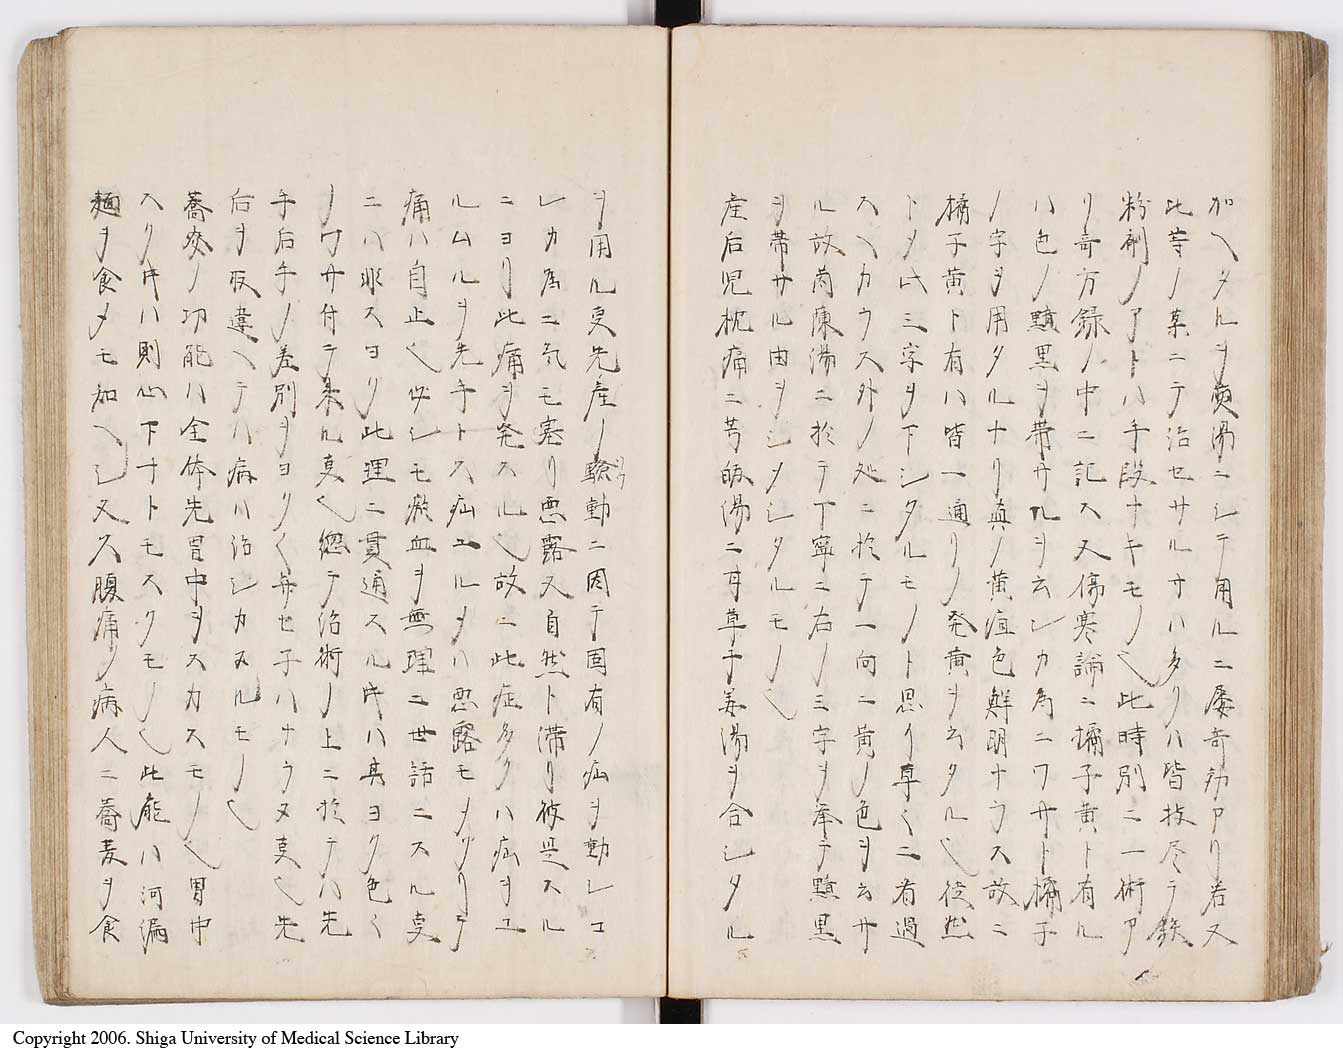 加ヘタルヲ煎湯ニシテ用ルニ屡奇効アリ若又
此等ノ薬ニテ治セサルナハタリハ皆技尽テ鉄
粉剤ノアトハ手段ナキモノ也此時別ニ一術ア
リ奇方録ノ中ニ記ス又傷寒論ニ橘子黄ト有ル
ハ色ノ黧黒ヲ帯サルヲ云シカ為ニワサト橘子
ノ字ヲ用タルナリ真ノ黄疸色鮮明ナラス故ニ
橘子黄ト有ハ皆一通リノ発黄ヲ云タル也徒然
トメ此三字ヲ下シタルモノト思リ草々ニ看過
スヘカラス外ノ処ニ於テ一向ニ黄ノ色ヲ云サ
ル故茵陳湯ニ於テ丁寧ニ右ノ三字ヲ挙テ黧黒
ヲ帯サル由ヲシメシタルモノ也
産后児枕痛ニ芎帰湯ニ甘草干姜湯ヲ合シタル
ヲ用ル㕝先産ノ騒動ニ因テ固有ノ疝ヲ動シコ
レカ為ニ気モ塞リ悪露又自然ト滞リ彼是スル
ニヨリ此痛ヲ発スル也故ニ此症多クハ疝ヲユ
ルムルヲ先手トス疝ユルメハ悪露モメクリテ
痛ハ自止也必シモ瘀血ヲ無理ニ世話ニスル㕝
ニハ非スヨリ此理ニ貫通スル䏻ハ其ヨク色く
ノワサ付テ来ル㕝也総テ治術ノ上ニ於テハ先
手后手ノ差別ヲヨクく弁セ子ハナラヌ㕝也先
后ヲ取違ヘテハ病ハ治シカヌルモノ也
蕎麥ノ功能ハ全体先胃中ヲスカスモノ也胃中
スクトキハ則心下ナトモスクモノ也此能ハ河漏
麺ヲ食メモ知ヘシ又久腹痛ノ病人ニ蕎麦ヲ食
Copyright 2006. Shiga University of Medical Science Library